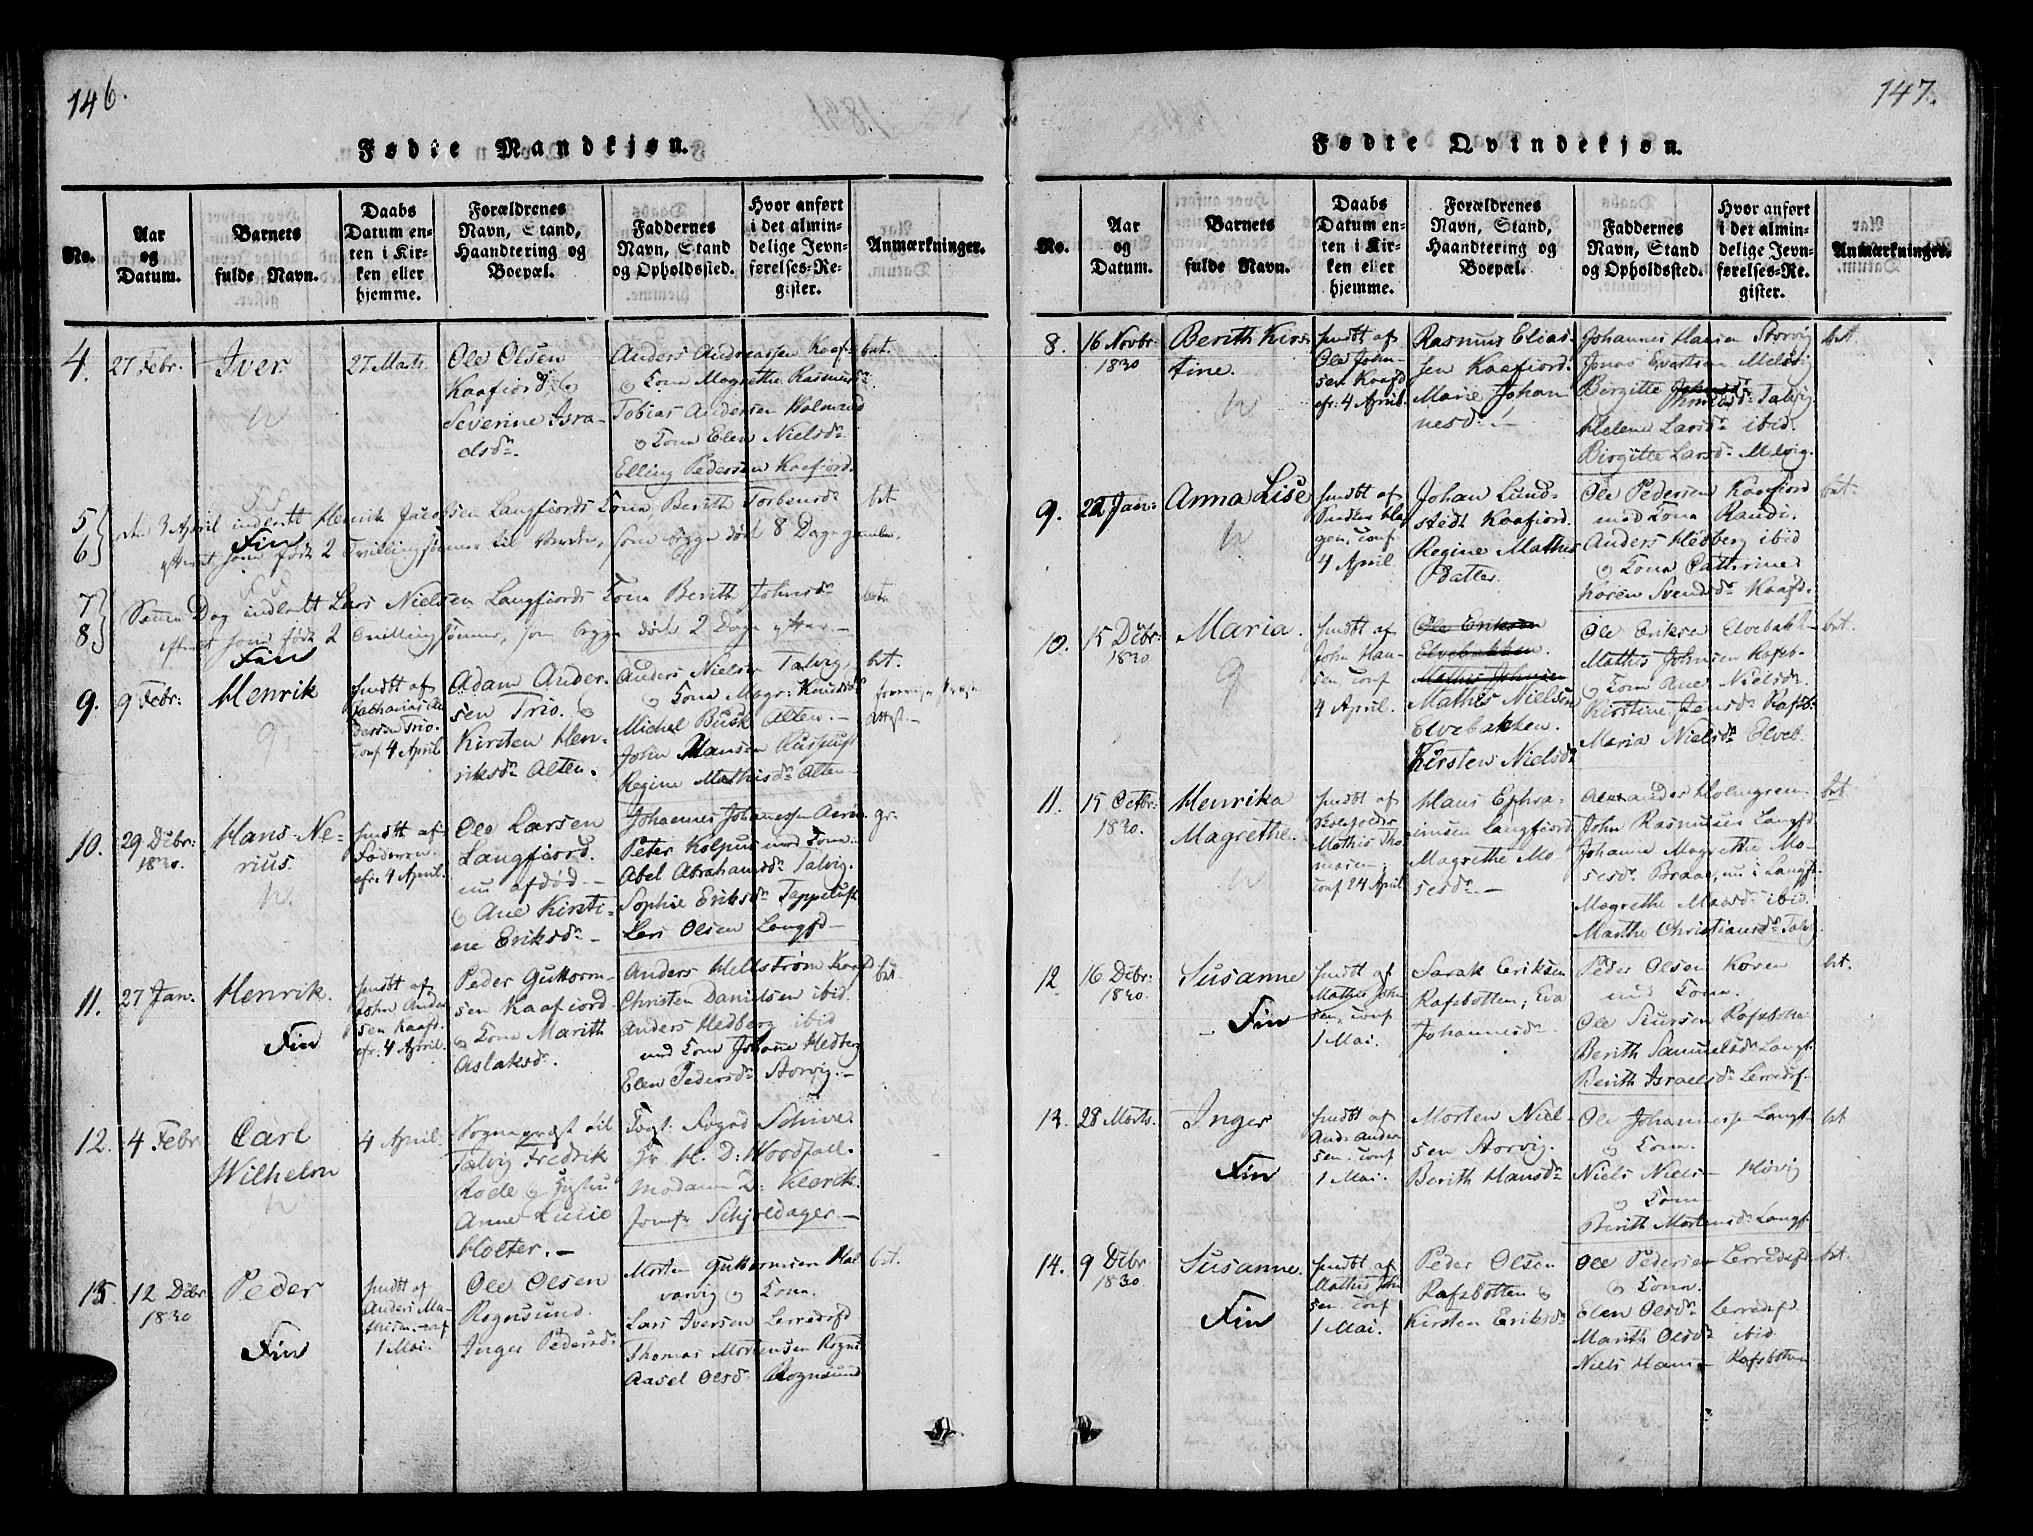 146.
Fødte Mandkjøn.
No.
Aar og Datum.
Barnets fulde Navn.
Daabs Datum enten i Kirken eller hjemme.
Forældrenes Navn, Stand, Haandtering og Boepæl.
Faddernes Navn, Stand og Opholdssted.
Hvor anført i det almindelige Jevnførelses-Register.
Anmærkninger.
4.
27 Febr.
Iver
27 Marts
Ole Olsen
Kaafiord, og
Severine Isra-
elsdr.
Anders Andreassen Kaaf-
og Kona Magrethe Rasmusdr.
Tobias Andersen Holmand
og Kona Elen Nielsdr.
Elling Pedersen Kaafiord.
bet.
5
6
den 3 April indledt Henrik Jacobsen Langfiords Kona, Berith Torbensdr
Fin
efterat have født 2 Tvillingsønner til Verden, som begge døde 8 Dage gamle.
bet
7
8.
Samme Dag indledt Lars Nielsen Langfiords Kona Berith Johnsdr
Fin
efterat have født 2 Tvillingsønner, som begge døde 2 Dage efter —
bet
9.
9 Febr:
Henrik
hmdbt af
Zacharias An-
dersen Trio.
conf 4 April
Adam Ander-
sen Trio. og
Kirsten Hen-
riksdr Alten.
Anders Nielsen Talvig,
og Kona Magr: Knudsdr
Michel Busk Alten. —
John Hansen
Regine Mathisdr Alten —
bet.
10.
29 Debr:
1830.
Hans Ne-
rius.
hmdbt af
Faderen.
cfr. 4 April.
Ole Larsen
Langfiord.
nu afdød —
og Ane Kirsti-
ne Eriksdr —
Johannes Johannessen
Peter Kolpus med Kona
Abel Abrahamsdr Talvig.
Sophie Eriksdr Tappeluft
Lars Olsen Langfd —
gr.
11.
27 Jan:
Henrik.
Fin
hmdbt af
John Ander
sen Kaafd.
cfr: 4 April.
Peder Guttorm-
sen Kaafiord
og Kona Marith
Aslaksdr.
Anders Hellstrøm Kaafd
Christen Danielsen ibid.
Anders Hedberg ibid
med Kona Johanne Hedberg
Elen Pedersdr Storvig. —
bet.
12.
4 Febr
Carl
Wilhelm
4 April.
Sognepræst til
Talvig Fredrik
Rode og Hustru
Anne Lucie
Holter. —
Fogt: Foged Schive.
Hr H. D. Woodfall.
Madame D. Klerck.
Jomfr Schjeldager —
15.
12 Debr
1830
Peder
Fin
hmdbt af
Anders Ma-
thisen. conf
1 Mai.
Ole Olsen
Rognsund.
Inger Pedersdr
Morten Guttormsen Hal
varvig og Kona.
Lars Iversen Lerredsfd
Thomas Mortensen Rogns
Aasel Olsdr Rognsund
bet.
147.
Fødte Qvindekjøn.
No.
Aar og Datum.
Barnets fulde Navn.
Daabs Datum enten i Kirken eller hjemme.
Forældrenes Navn, Stand, Haandtering og Boepæl.
Faddernes Navn, Stand og Opholdssted.
Hvor anført i det almindelige Jevnførelses-Re-gister.
Anmærkninger.
8.
16 Novbr
1830
Berith Kirs-
tine.
hmdbt af
Ole John-
sen Kaafd
cfr. 4 April.
Rasmus Elias-
sen Kaafiord.
Marie Johan
nesdr. —
Johannes Hansen Storvig
Jonas Evertsen Melsvig
Birgitte Talvig
Helene Larsdr ibid.
Birgitte Larsdr Melsvig.
bet.
9.
22 Jan:
Anna Lise
hmdbt af
Peder Ha
gen, conf
4 April
Johan Lund-
stedt Kaafiord.
Regine Mathis
Datter.
Ole Pedersen Kaafiord
med Kona Randi.
Anders Hedberg ibid
og Kona Cathrine
Karen Svendsdr Kaafd.
bet.
10.
15 Debr:
1830
Maria.
hmdbt af
John Han-
sen, conf
4 April.
Ole Eriksen
Elvebakken.
Mathis Johnsen
Mathis Nielsen
Elvebakken.
Kirsten Nielsdr
Ole Eriksen Elvebakk-
Mathis Johnsen Rafsb-
og Kona Ane Nielsdr.
Kirstine Jensdr Rafsb.
Maria Nielsdr Elveb.
bet.
11.
15 Octbr:
1830.
Henrika
Magrethe.
hmdbt af
Skoleholder
Mathis Tho
masen;
conf 24 April
Hans Ephra-
imsen Langfiord
Magrethe Mo-
sesdr. —
Alexander Holmgren —
John Rasmusen Langfd
Johanna Magrethe Mo-
sesdr. Braae, nu i Langf-
Magrethe Maasdr ibid.
Marthe Christiansdr Talvig
bet
12
16 Debr:
1830.
Susanne
Fin
hmdbt af
Mathis John
sen, conf
1 Mai.
Sarak Eriksen
Rafsbotten; Eva
Johannesdr —
Peder Olsen Koren
med Kona.
Ole Siursen Rafsbotn
Berith Samuelsdr Langf.
Berith Israelsdr Lerredsf.
bet.
13.
28 Marts.
Inger
Fin
hmdbt af
And: Ander
sen. conf
1 Mai.
Morten Niel-
sen Storvig.
Berith Hansdr
Ole Johannesen Langf-
og Kona.
Niels Niels —
og Kona —
Berith Mortensdr Langf.
bet
14.
9 Debr
1830
Susanne.
Fin
hmdbt af
Mathis John
sen. conf
1 Mai.
Peder Olsen
Rafsbotten og
Kirsten Eriksdr
Ole Pedersen Lerredsfd
og Kona.
Elen Olsdr Lerredsfd
Marith Olsdr ibid
Niels Hans — Rafsbotten
bet.